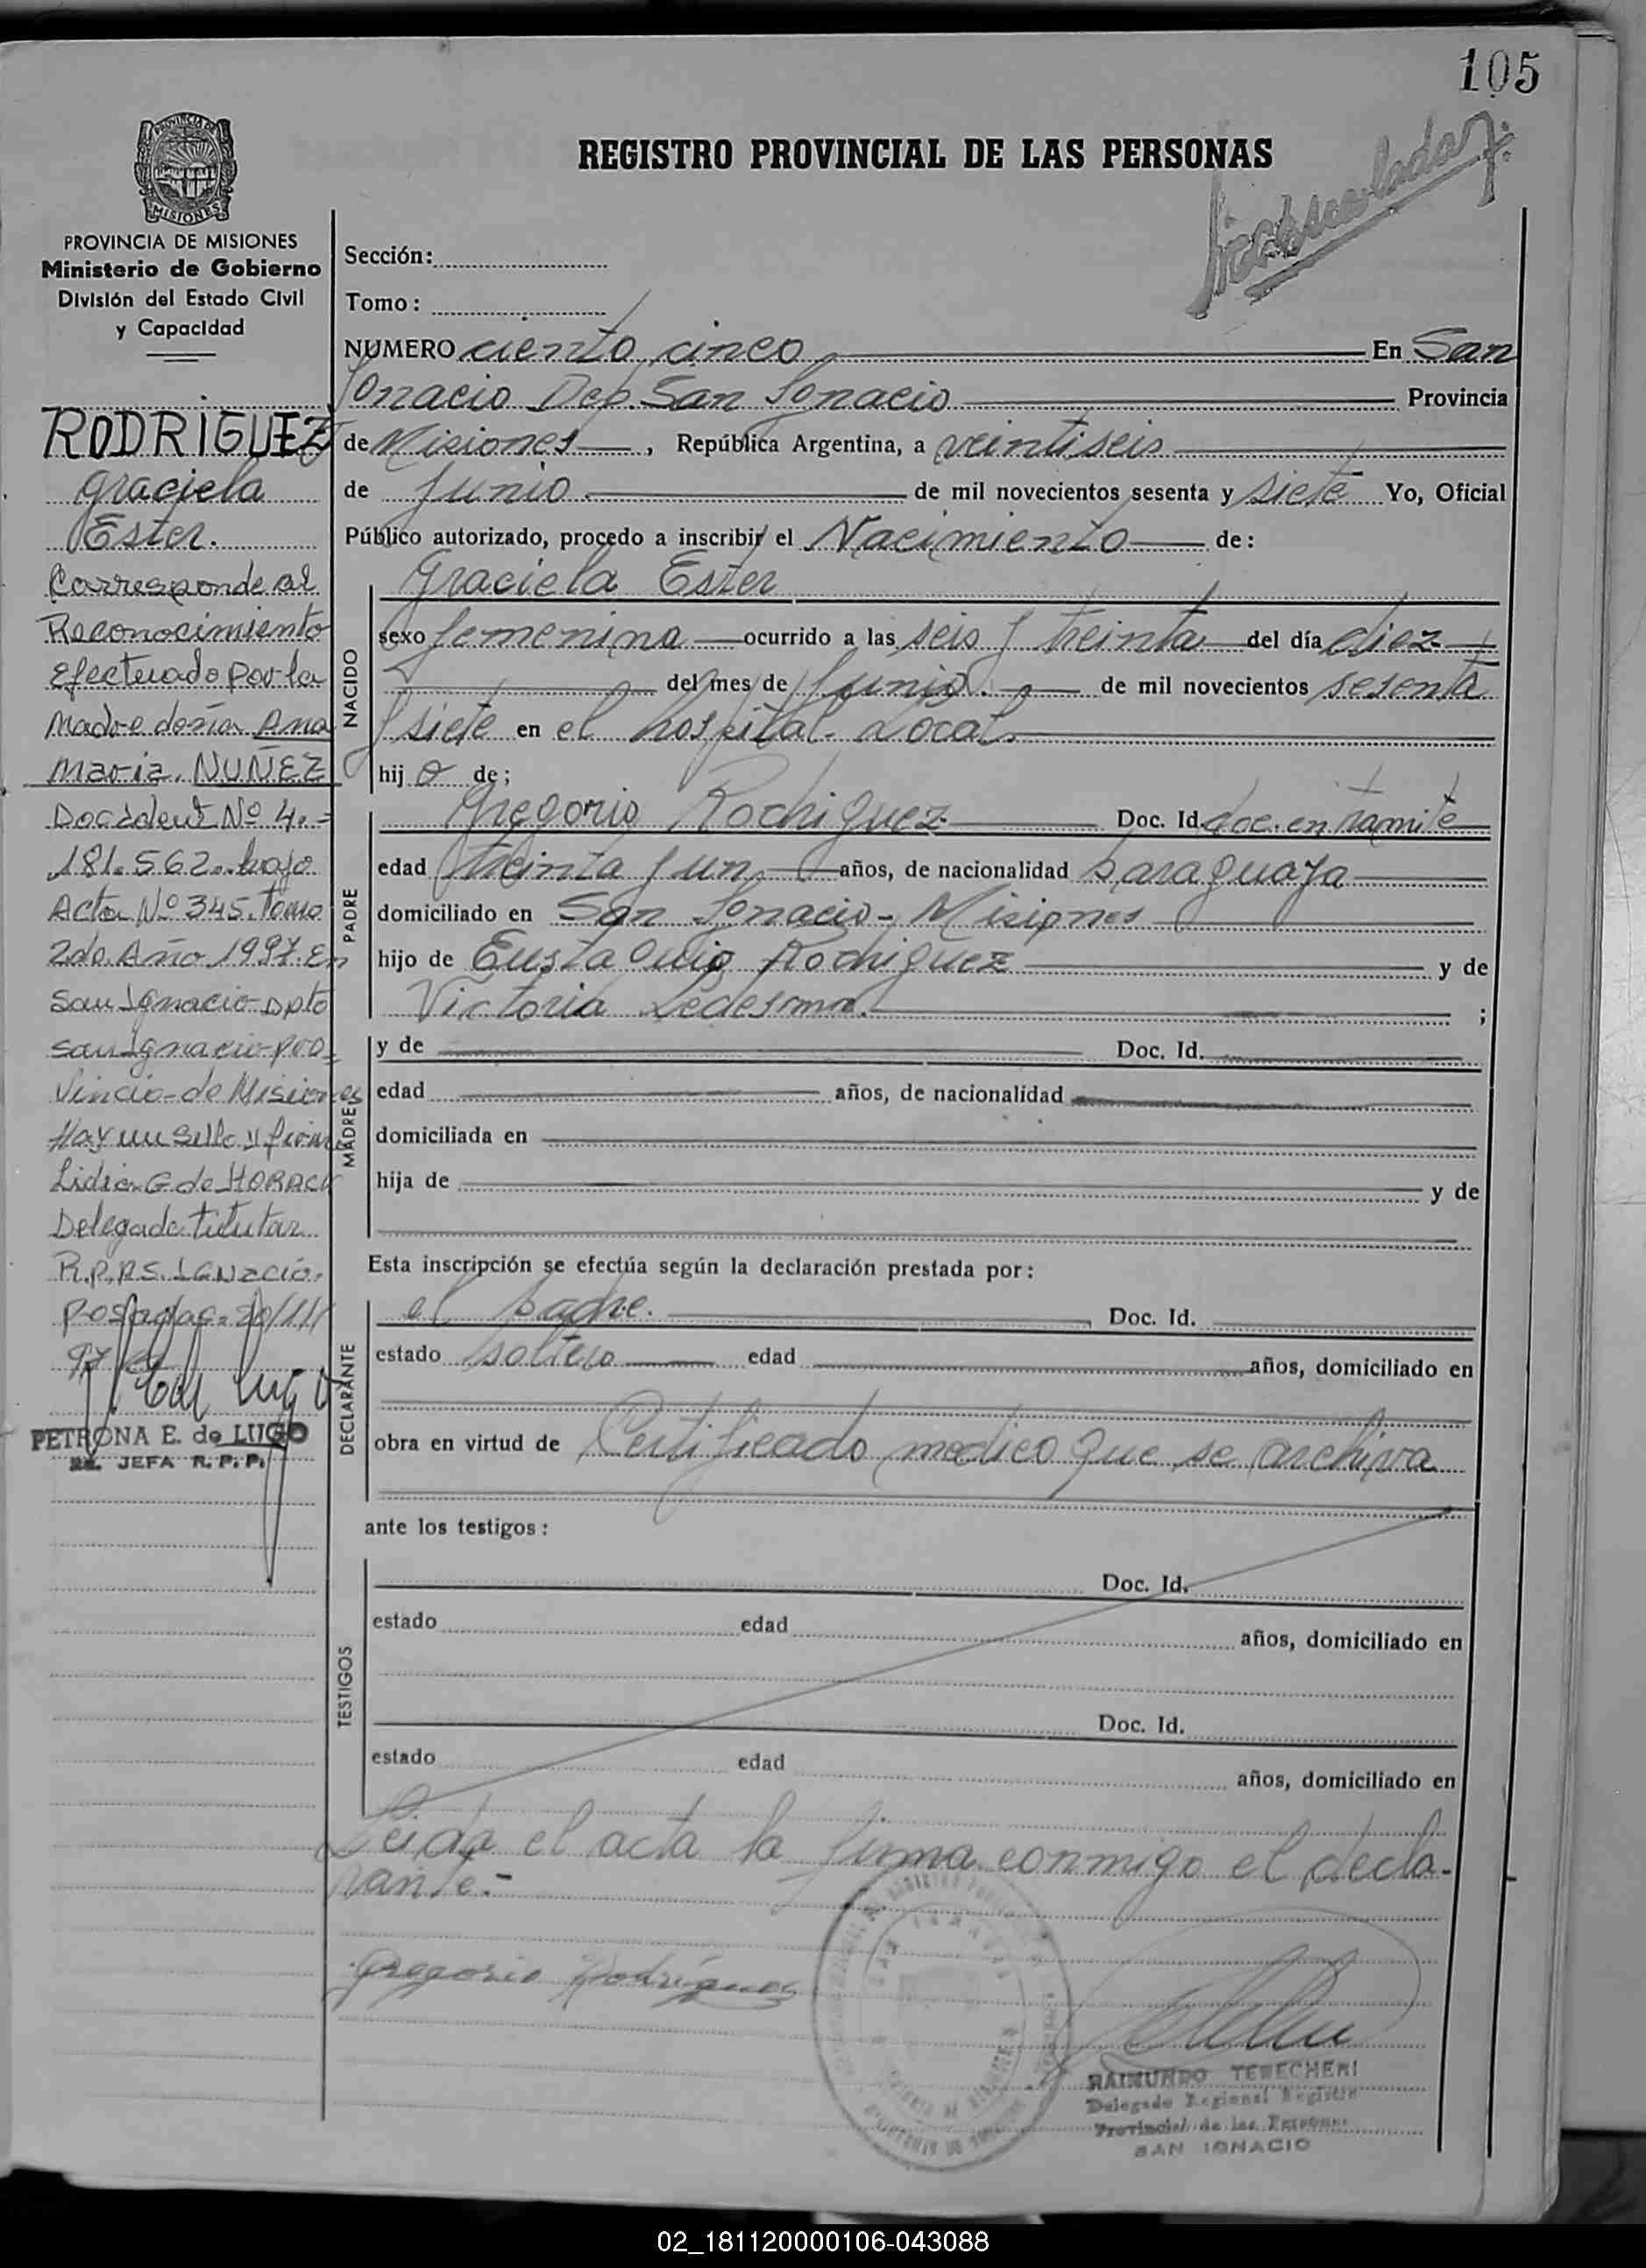 105
PROVINCIA DE
MISIONES
REGISTRO PROVINCIAL DE LAS PERSONAS
PROVINCIA DE MISIONES
Ministerio de Gobierno
División del Estado Civil
y Capacidad
RODRIGUEZ
Graciela
Ester.
Corresponde al
Reconocimiento
efectuado por la
Madre doña Ana
Maria. NUÑEZ
Doc Ident Nº 4.-
181.562. bajo
Acta Nº 345. Tomo
2do. Año 1997. En
San Ignacio Dpto
San Ignacio-Pro-
vincia-de Misiones
Hay un Sello y firma
Lidia G de
Delegada Titular
R.P.P.S. IGNACIO.
Posadas= 20/11/
97
PETRONA E. de LUGO
JEFA R. P. P.
Sección:
Tomo:
NUMERO ciento cinco En San
Ignacio Dep. San Ignacio Provincia
de Misiones, República Argentina, a veintiseis
de Junio de mil novecientos sesenta y siete Yo, Oficial
Público autorizado, procedo a inscribir el Nacimiento de:
NACIDO
Graciela Ester
sexo femenino ocurrido a las seis y treinta del día diez
del mes de Junio. de mil novecientos sesenta
y siete en el hospital local
hij o de;
PADRE
Gregorio Rodriguez Doc. Id. doc. en tramite
edad treinta y un años, de nacionalidad paraguaya
domiciliado en San Ignacio- Misiones
hijo de Eustaquio Rodriguez y de
Victoria Ledesma. ;
MADRE
y de Doc. Id.
edad años, de nacionalidad
domiciliada en
hija de y de
Esta inscripción se efectúa según la declaración prestada por:
DECLARANTE
el padre. Doc. Id.
estado soltero edad años, domiciliado en
obra en virtud de Certificado medico que se archiva
ante los testigos:
TESTIGOS
Doc. Id.
estado edad años, domiciliado en
Doc. Id.
estado edad años, domiciliado en
Leida el acta la firma conmigo el decla-
rante.-
Gregorio Rodríguez
RAIMUNDO TERECHEKI
Delegado Regional Registro
Provincial de las Personas
SAN IGNACIO
02_181120000106-043088